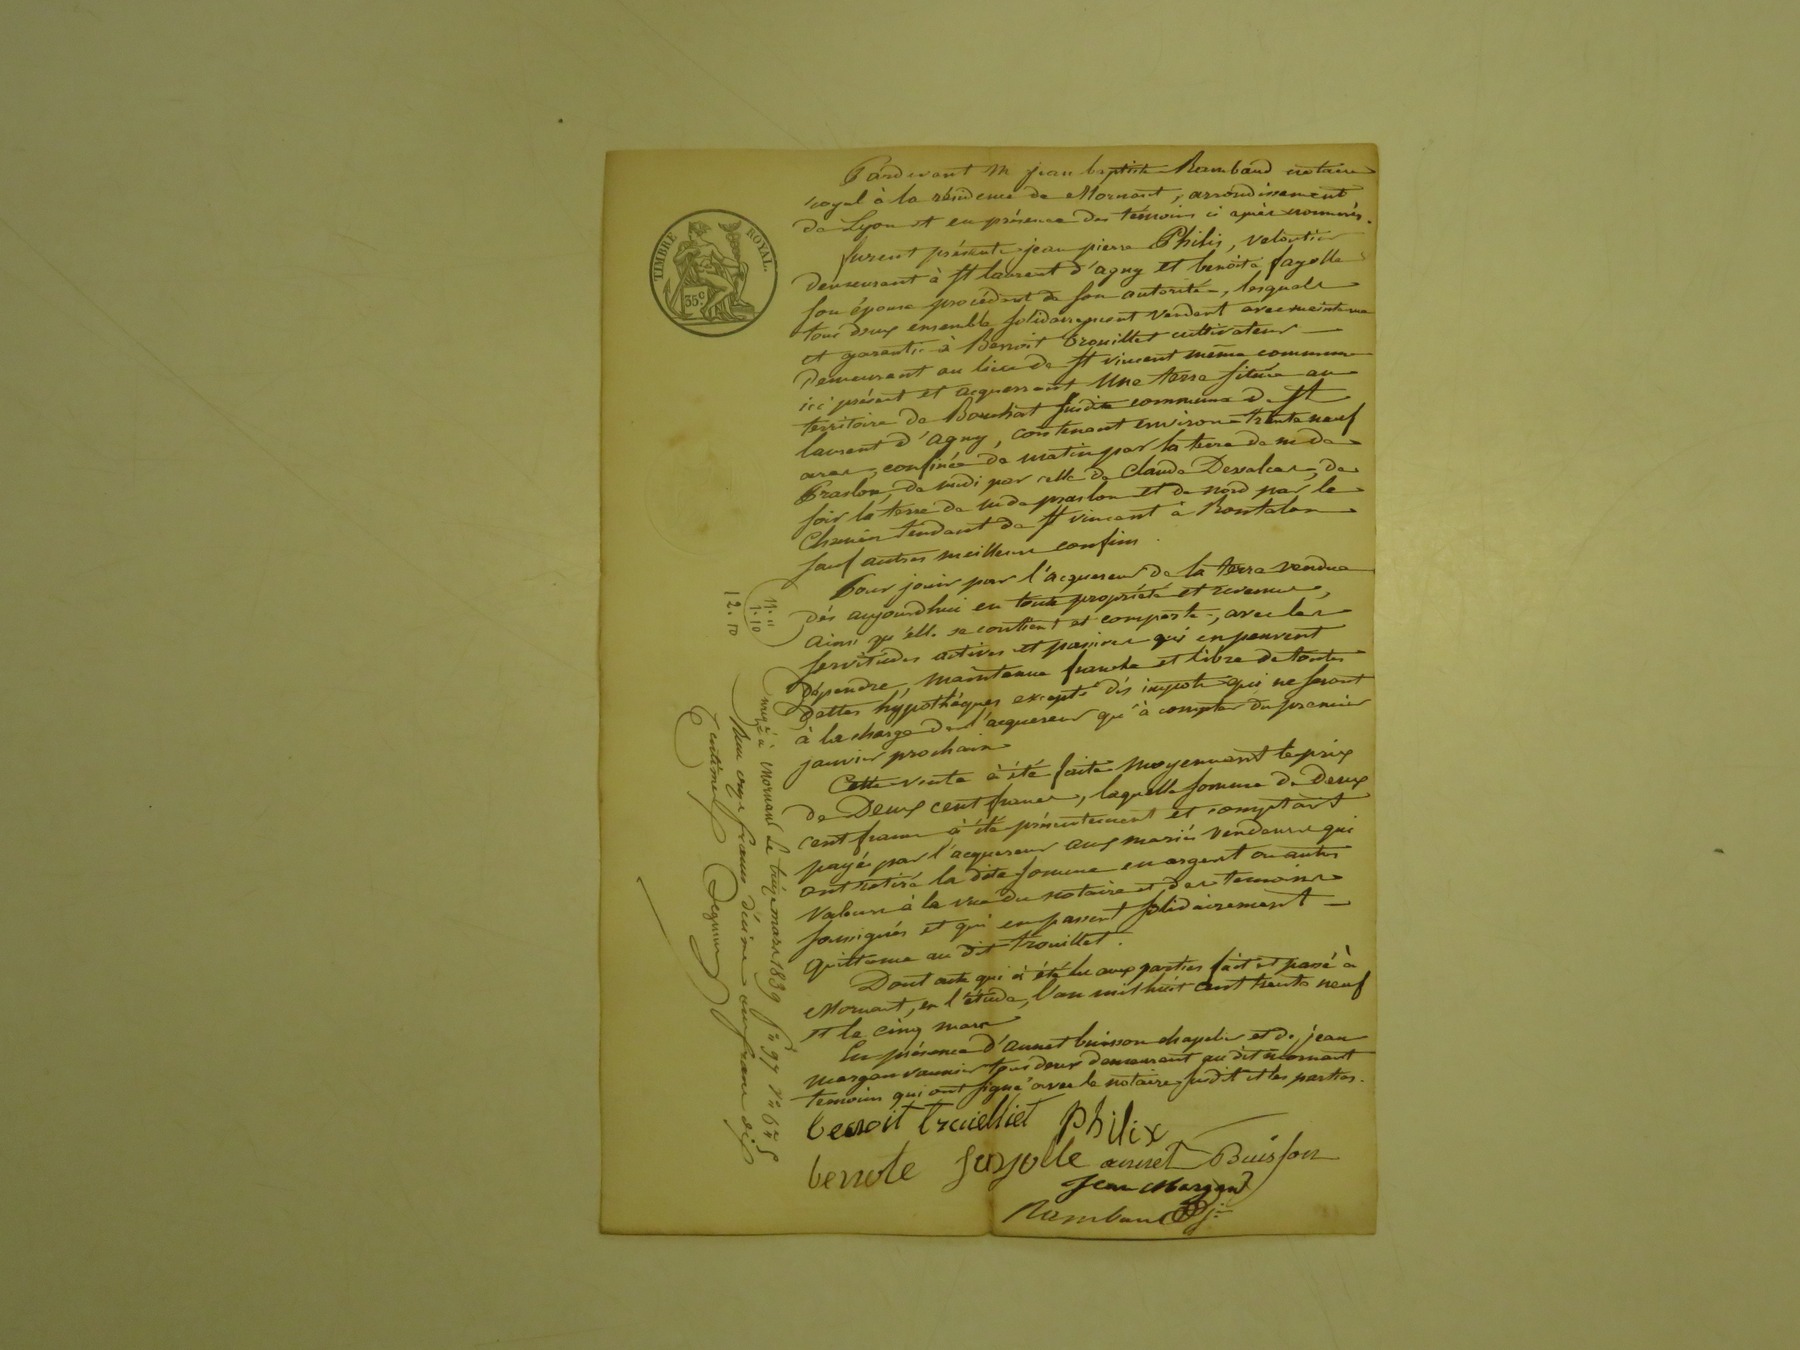 TIMBRE ROYAL.
35c
Pardevant Me jean baptiste Rambaud notaire
royal à la résidence de Mornant, arrondissement
de Lyon et en présence des témoins ci après nommés.
furent présents jean pierre Philis, veloutier
demeurant à St laurent d'agny et benoite fayolle
son épouse procédent de son autorité, lesquels
tous deux ensemble solidairement vendent avec maintenue
et garantie à Benoit Trouillet cultivateur
demeurant au lieu de St vincent même commune
ici présent et acquerrant Une terre située au
territoire de susdite commune de St
laurent d'agny, contenant environ trente neuf
ares, confinée de matin par la terre de m de
Praslon, de midi par celle de Claude de
soir la terre de m de praslon et de nord par le
Chemin tendant de St vincent à Rontalon
sauf autres meilleurs confins.
Pour jouir par l'acquereur de la terre vendue
dés aujourdhui en toute propriété et revenus,
ainsi qu'elle se contient et comporte, avec les
servitudes actives et passives qui en peuvent
dépendre, maintenue franche et libre de toutes
dettes hypothéques excepté dés impots qui ne seront
à la charge de l'acquereur qu'à compter du premier
janvier prochain
Cette vente à été faite moyennant le prix
de Deux cent francs, laquelle somme de Deux
cent francs à été présentement et comptant
payée par l'acquereur aux mariés vendeurs qui
ont retiré la dite somme en argent ou autres
valeurs à la vue du notaire et des temoins
soussignés et qui en passent solidairement
quittance au dit trouillet.
Dont acte qui à été lu aux parties fait et passé à
Mornant, en l'étude, l'an mil huit cent trente neuf
et le cinq mars
En présence d'annet buisson chapelier et de jean
margan vannier tous deux demeurant au dit mornant
temoins qui ont signé avec le notaire susdit et les parties.
benoit trouilliet Philix
benoite fayolle annet Buisson
Jean Margand
Rambaud
11. "
1. 10
12. 10
Enrgé à Mornant le treize mars 1839 fo 97 Vo
Reçu onze francs décime un franc dix
Centimes